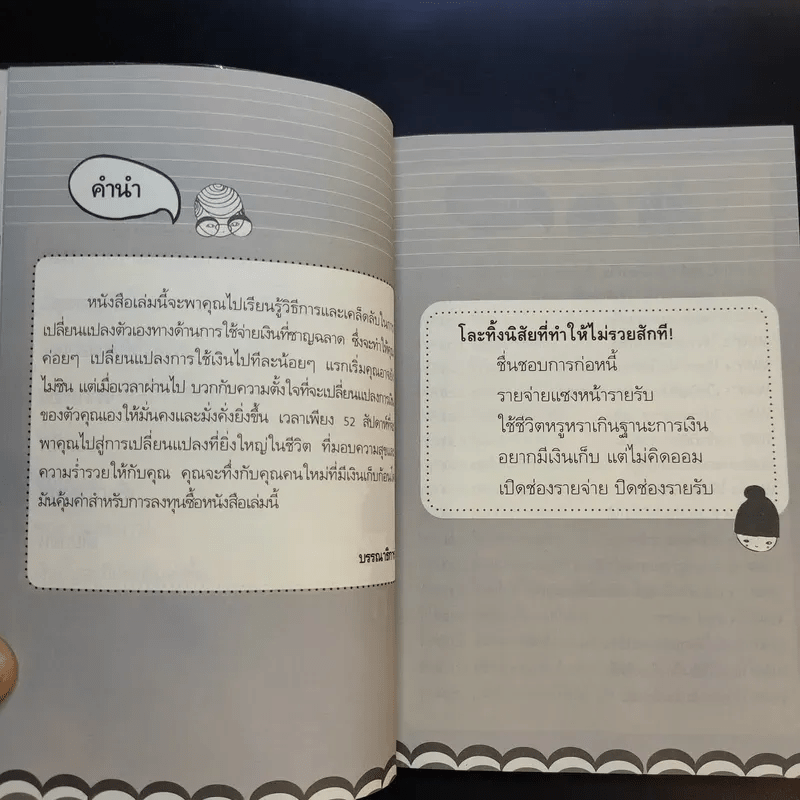 คำนำ
หนังสือเล่มนี้จะพาคุณไปเรียนรู้วิธีการและเคล็ดลับใน
เปลี่ยนแปลงตัวเองทางด้านการใช้จ่ายเงินที่ชาญฉลาด ซึ่งจะทำให้
ค่อยๆ เปลี่ยนแปลงการใช้เงินไปทีละน้อยๆ แรกเริ่มคุณอาจ
ไม่ชิน แต่เมื่อเวลาผ่านไป บวกกับความตั้งใจที่จะเปลี่ยนแปลงการ
ของตัวคุณเองให้มั่นคงและมั่งคั่งยิ่งขึ้น เวลาเพียง 52 สัปดาห์
พาคุณไปสู่การเปลี่ยนแปลงที่ยิ่งใหญ่ในชีวิต ที่มอบความสุข
ความร่ำรวยให้กับคุณ คุณจะทึ่งกับคุณคนใหม่ที่มีเงินเก็บก้อน
มันคุ้มค่าสำหรับการลงทุนซื้อหนังสือเล่มนี้
บรรณาธิกา
โละทิ้งนิสัยที่ทำให้ไม่รวยสักที!
ชื่นชอบการก่อหนี้
รายจ่ายแซงหน้ารายรับ
ใช้ชีวิตหรูหราเกินฐานะการเงิน
อยากมีเงินเก็บ แต่ไม่คิดออม
เปิดช่องรายจ่าย ปิดช่องรายรับ